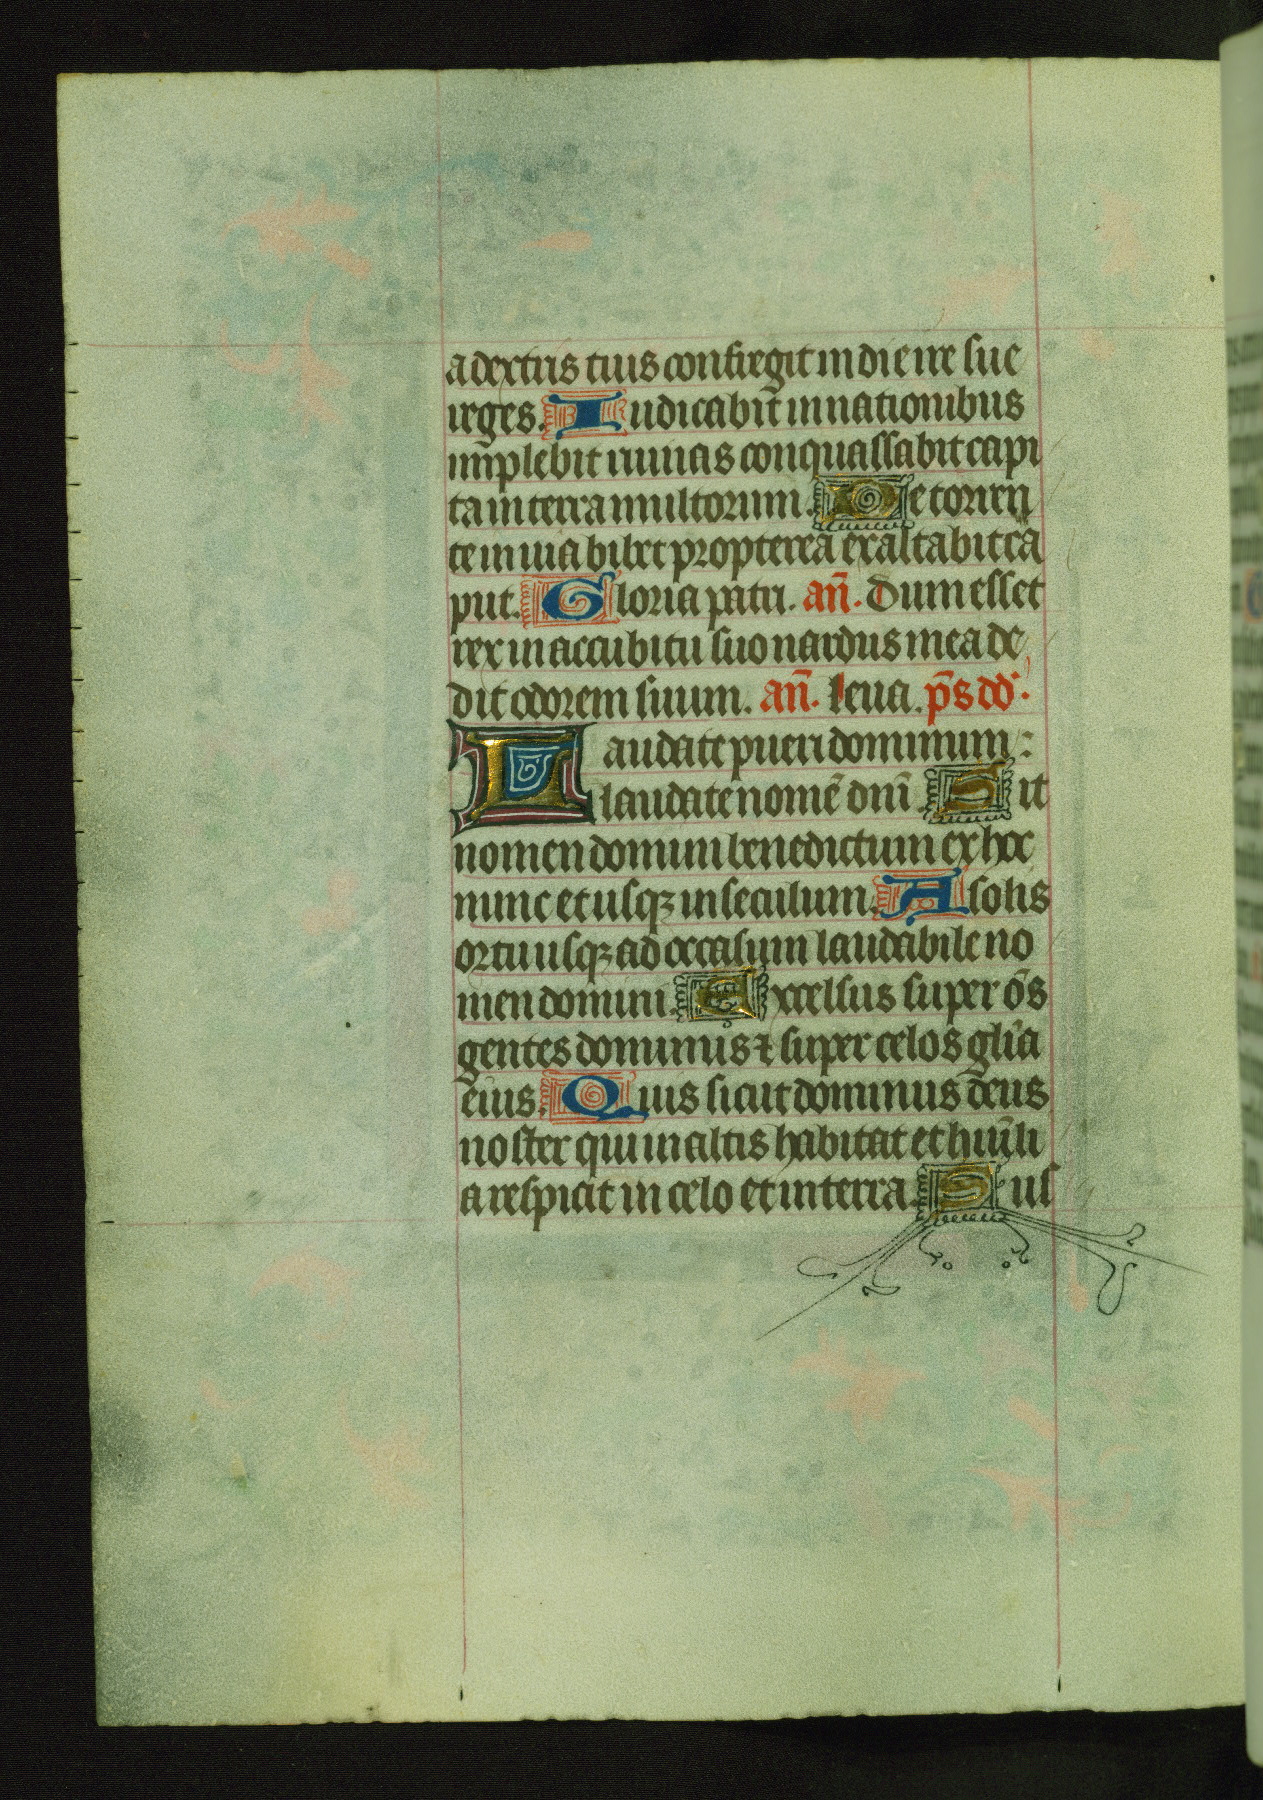 a dextris tuis confregit in die ire sue
reges. Iudicabit̄ in nationibus
im̄plebit ruinas conquassabit capi
ta in terra multorum. De torren
te in uia bibet propterea exaltabit ca
put. Gloria patri. an̄. Dum esset
rex in accubitu suo nardus mea de
dit odorem suum. an̄. leua. p̄s dd̄.
Laudate pueri dominum:
laudate nomē dnī. Sit
nomen domini benedictum ex hoc
nunc et usqꝫ in seculum. A solis
ortu usqꝫ ad occasum laudabile no
men domini. Excelsus super ōs
gentes dominus ⁊ super celos glīa
eius. Quis sicut dominus deus
noster qui in altis habitat et hum̄li
a respicit in celo et in terra. Sus